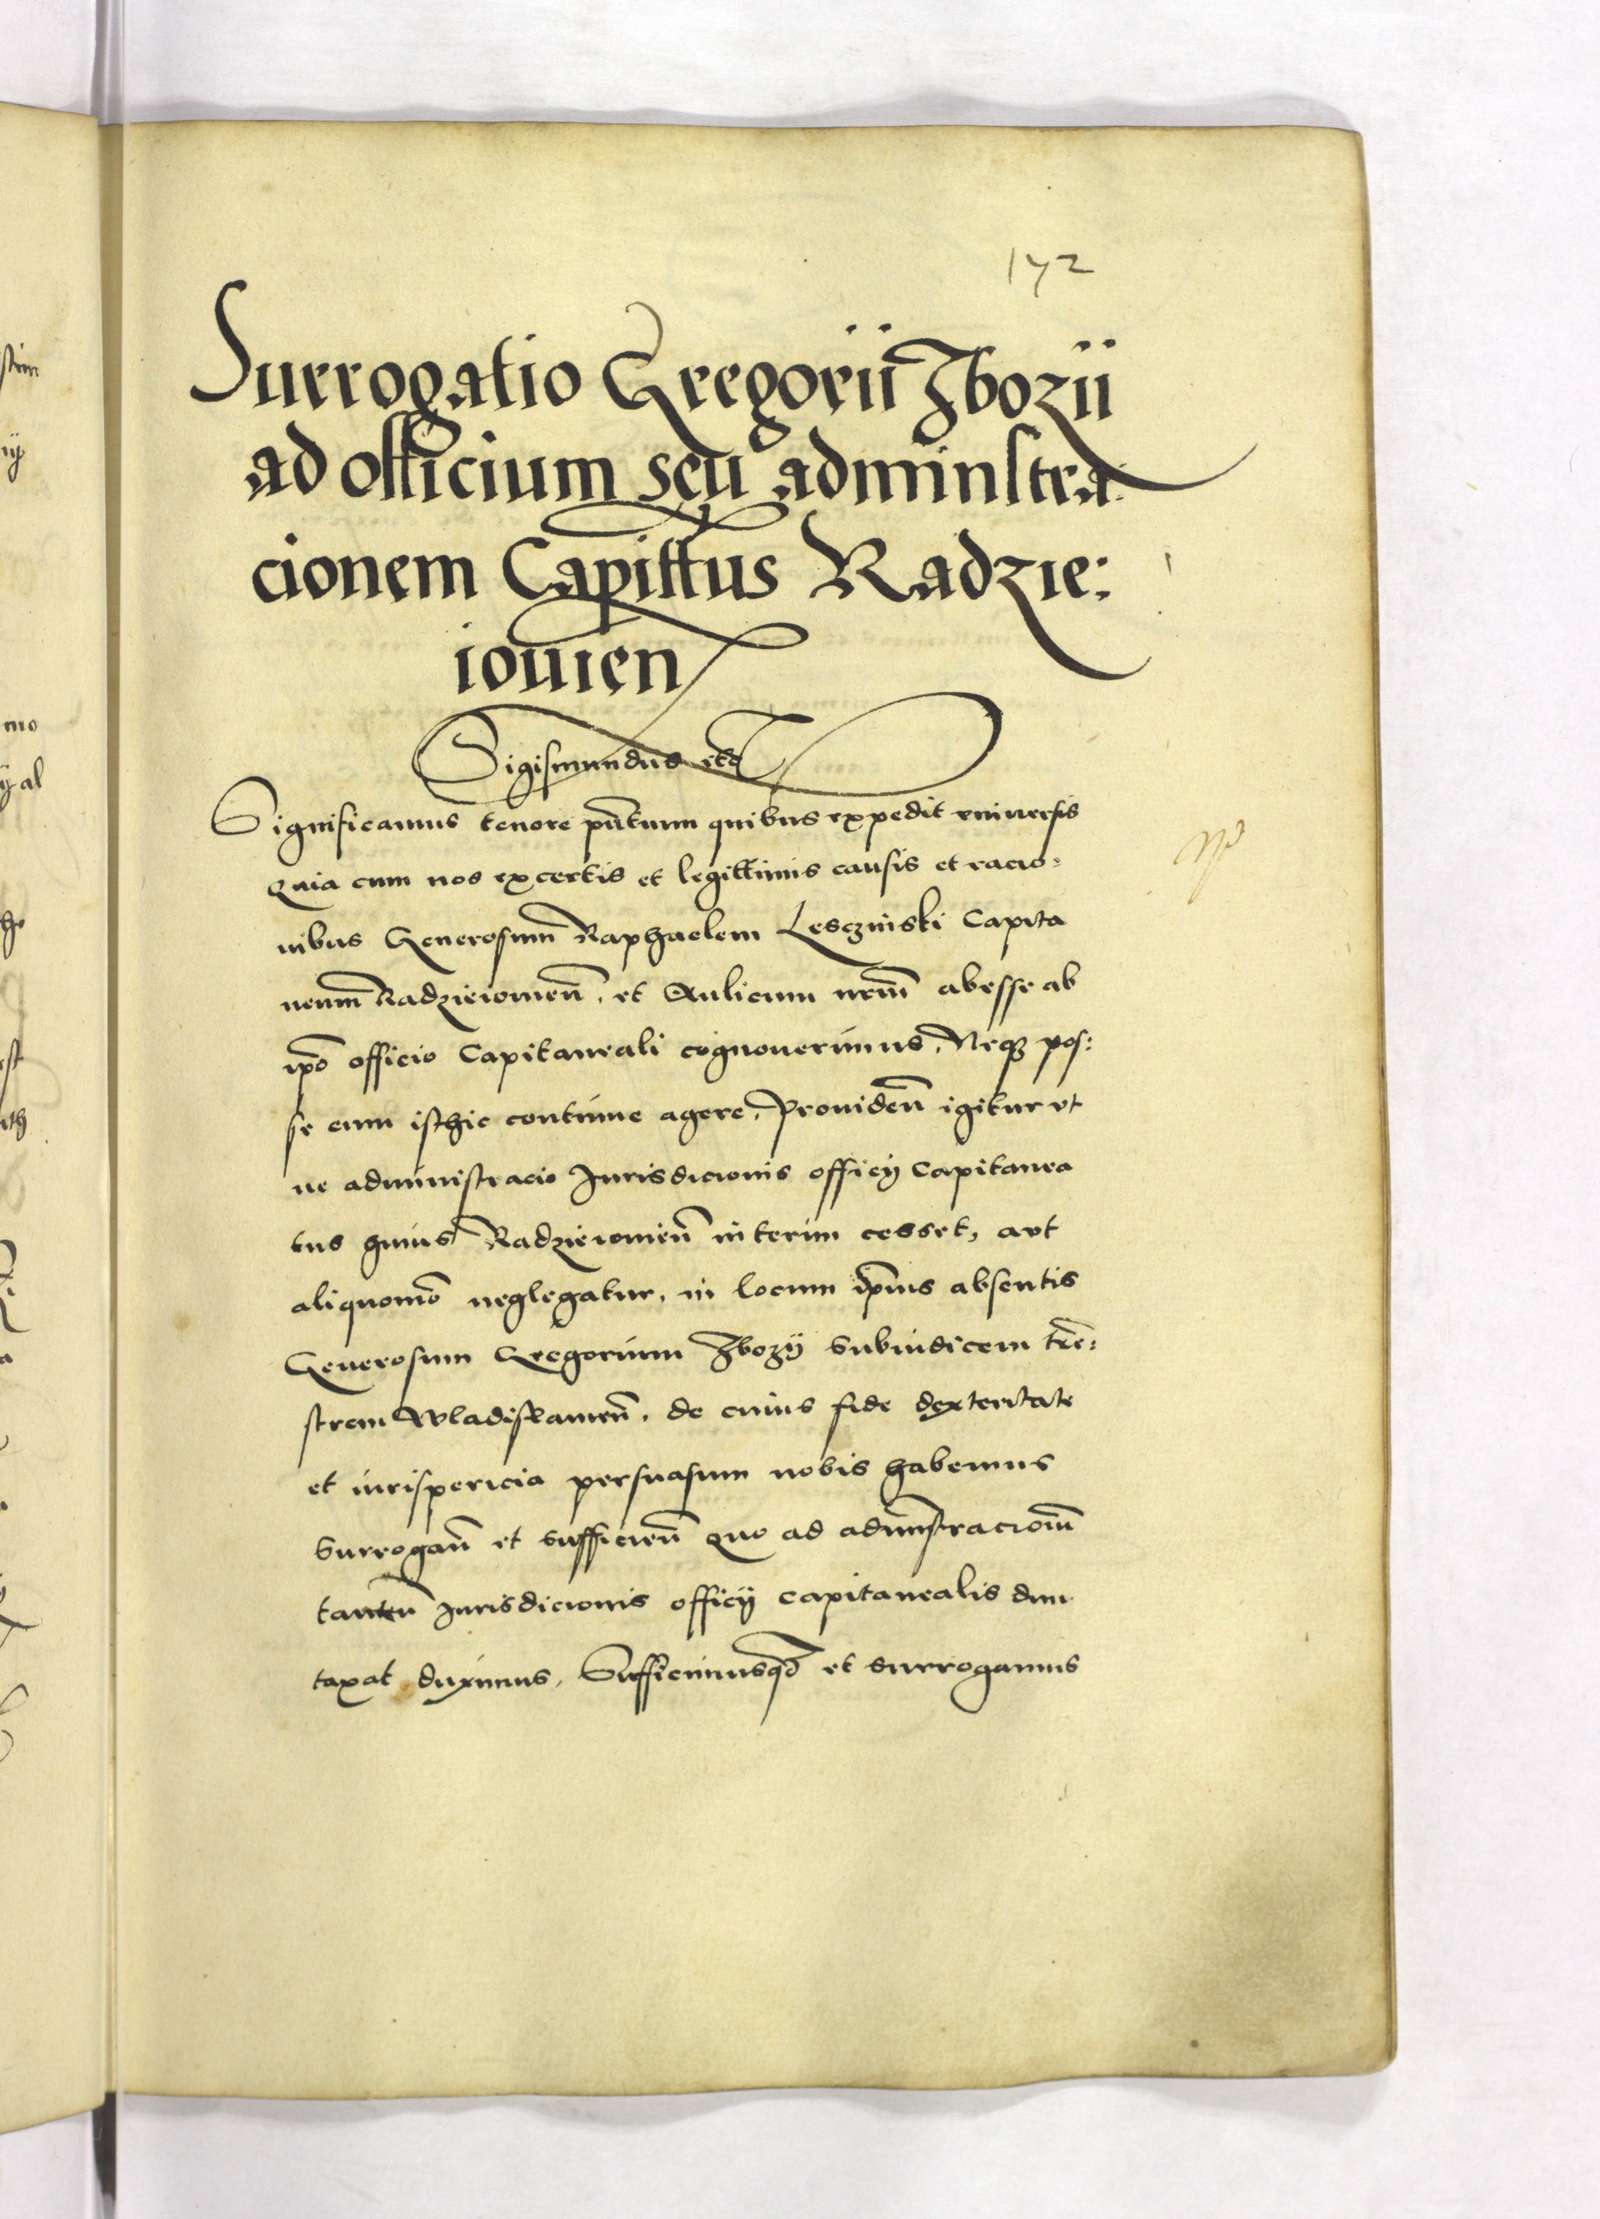 172
Surrogatio Gregorii Zbozii
ad officium seu adminstra:
cionem Capittus Radzie:
iouien
Sigismundus etc
Significamus tenore pntium quibus expedit vniuersis
Quia cum nos ex certis et legittimis causis et racio:
nibus Generosum Raphaelem Lesczinski Capita
neum Radzieiouien̄. et Aulicum nr̄m abesse ab
ip̄o officio Capitaneali cognouerimus, Neq; pos:
se eum isthic continue agere, Prouiden̄ igitur vt
ne administracio Jurisdicionis officij Capitanea
tus huius Radzieiouien̄ interim cesset, aut
aliquomō neglegatur, in locum ip̄ius absentis
Generosum Gregorium Zbozij Subiudicem tr̄e:
strem Wladislauien̄. de cuius fide dexteritate
et iurispericia persuasum nobis habemus
surrogan̄ et sufficien̄ quo ad admn̄stracionē
Jurisdicionis officij capitanealis dun
taxat duximus, Sufficimusqe et surrogamus